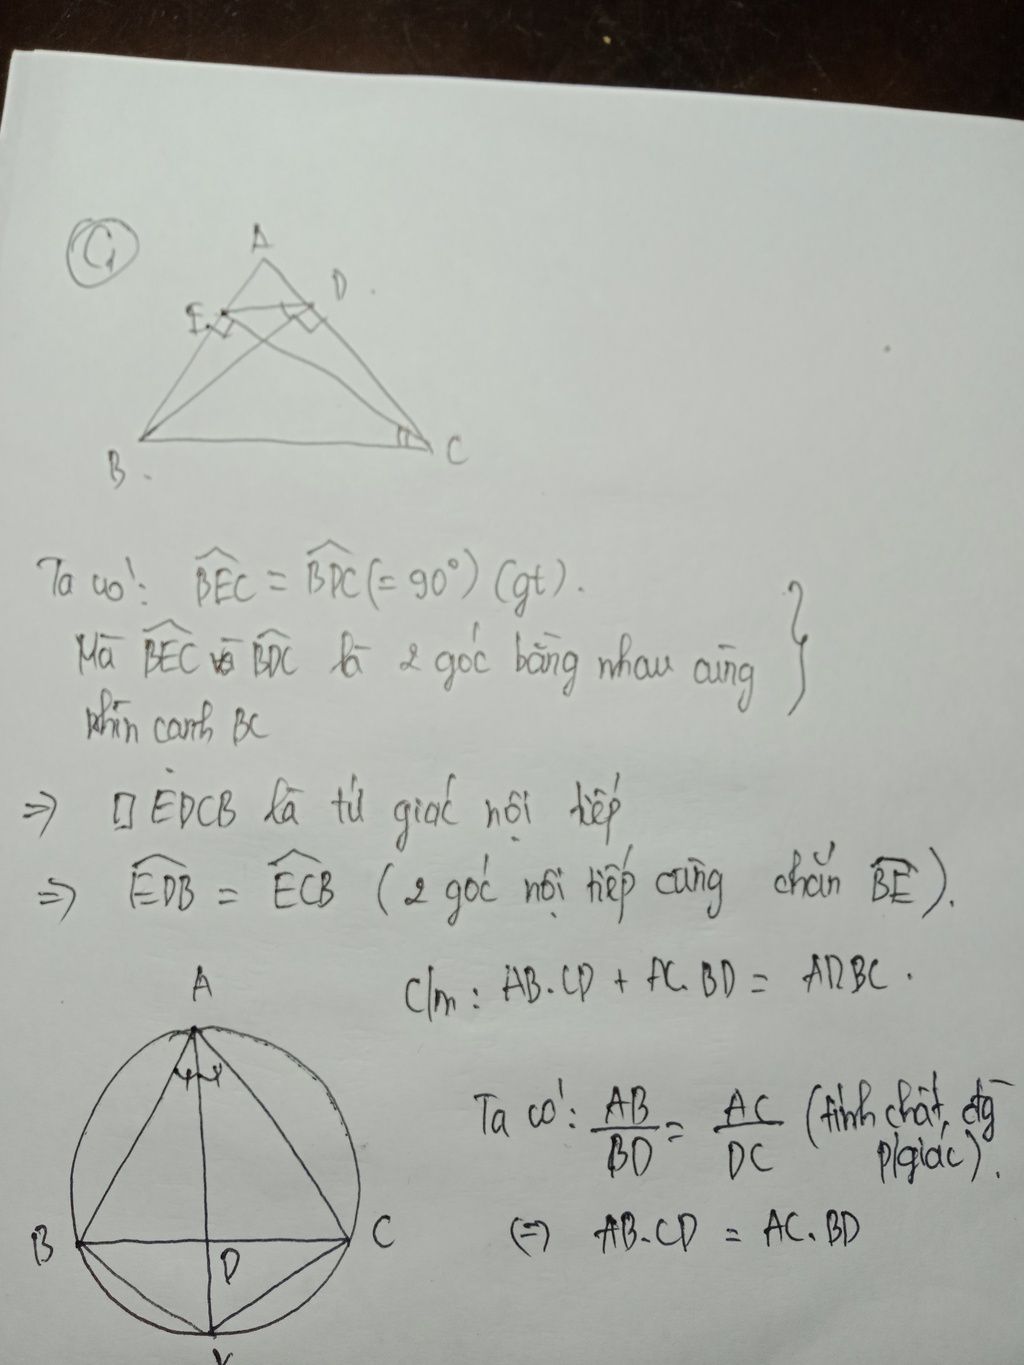 C1
A
D
E
B
C
Ta có: BEC = BDC (= 90°) (gt).
Mà BEC và BDC là 2 góc bằng nhau cùng
nhìn cạnh BC
⇒ □ EDCB là tứ giác nội tiếp
⇒ EDB = ECB (2 góc nội tiếp cùng chắn BE).
A
C/m: AB.CD + AC.BD = AD.BC.
Ta có: AB/BD = AC/DC (tính chất đg p/giác).
B
C
(=) AB.CD = AC.BD
D